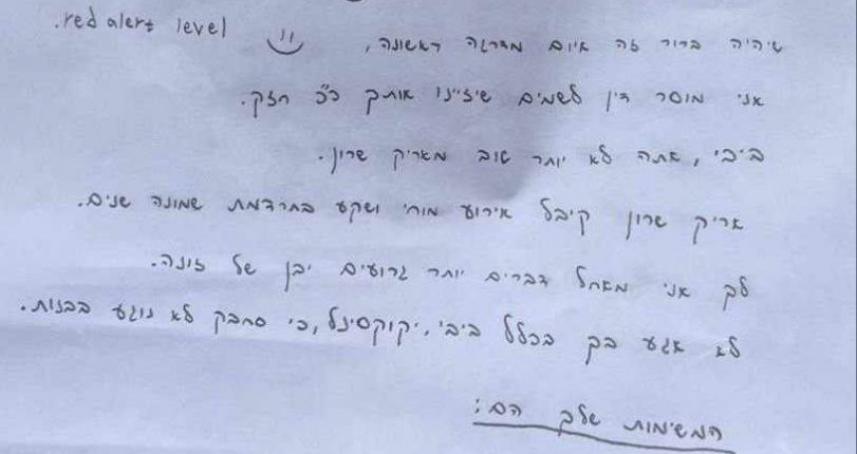 שיהיה ברור זה איום מדרגה ראשונה, red alert level.
אני מוסר דין לשמים שיזיינו אותך כ"כ חזק.
ביבי, אתה לא יותר טוב מאריק שרון.
אריק שרון קיבל אירוע מוחי ושקע בתרדמת שמונה שנים.
לך אני מאחל דברים יותר גרועים יבן של זונה.
לא אגע בך בכלל ביבי, יקוקסינל, כי סחבק לא נוגע בבנות.
המשימות שלך הם: